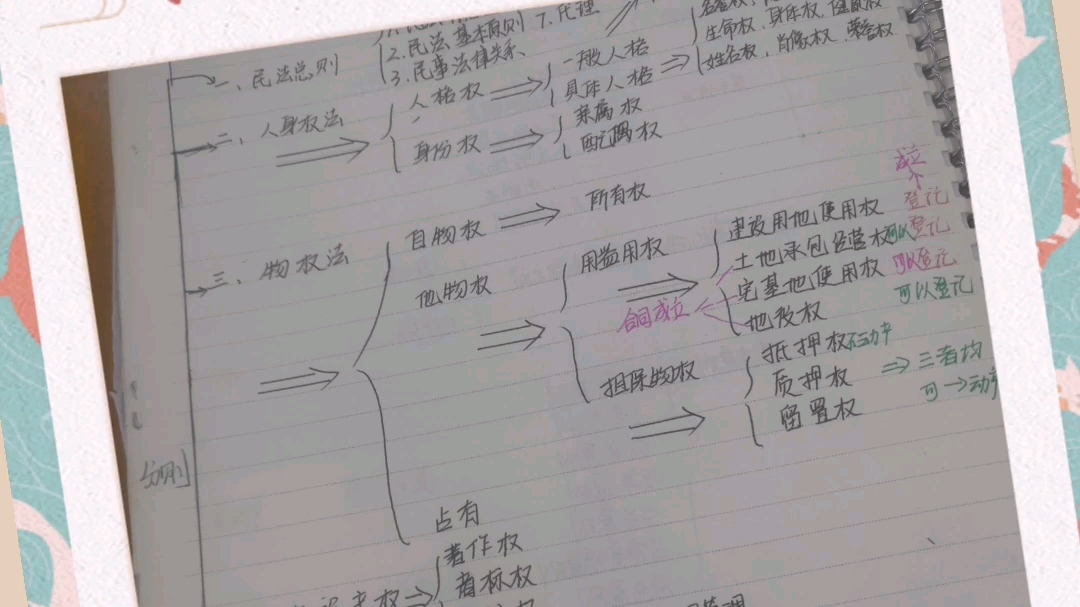 2. 民法基本原则 7. 代理
一、民法总则
3. 民事法律关系
生命权、身体权、健康权
姓名权、肖像权、荣誉权
二、人身权法
人格权
一般人格
具体人格
身份权
亲属权
配偶权
三、物权法
自物权
所有权
他物权
用益物权
建设用地使用权 登记
成立
土地承包经营权 可以登记
宅基地使用权 可以登记
地役权 可以登记
合同成立
担保物权
抵押权 不动产
质押权
三者均
可→动产
留置权
分则
占有
著作权
商标权